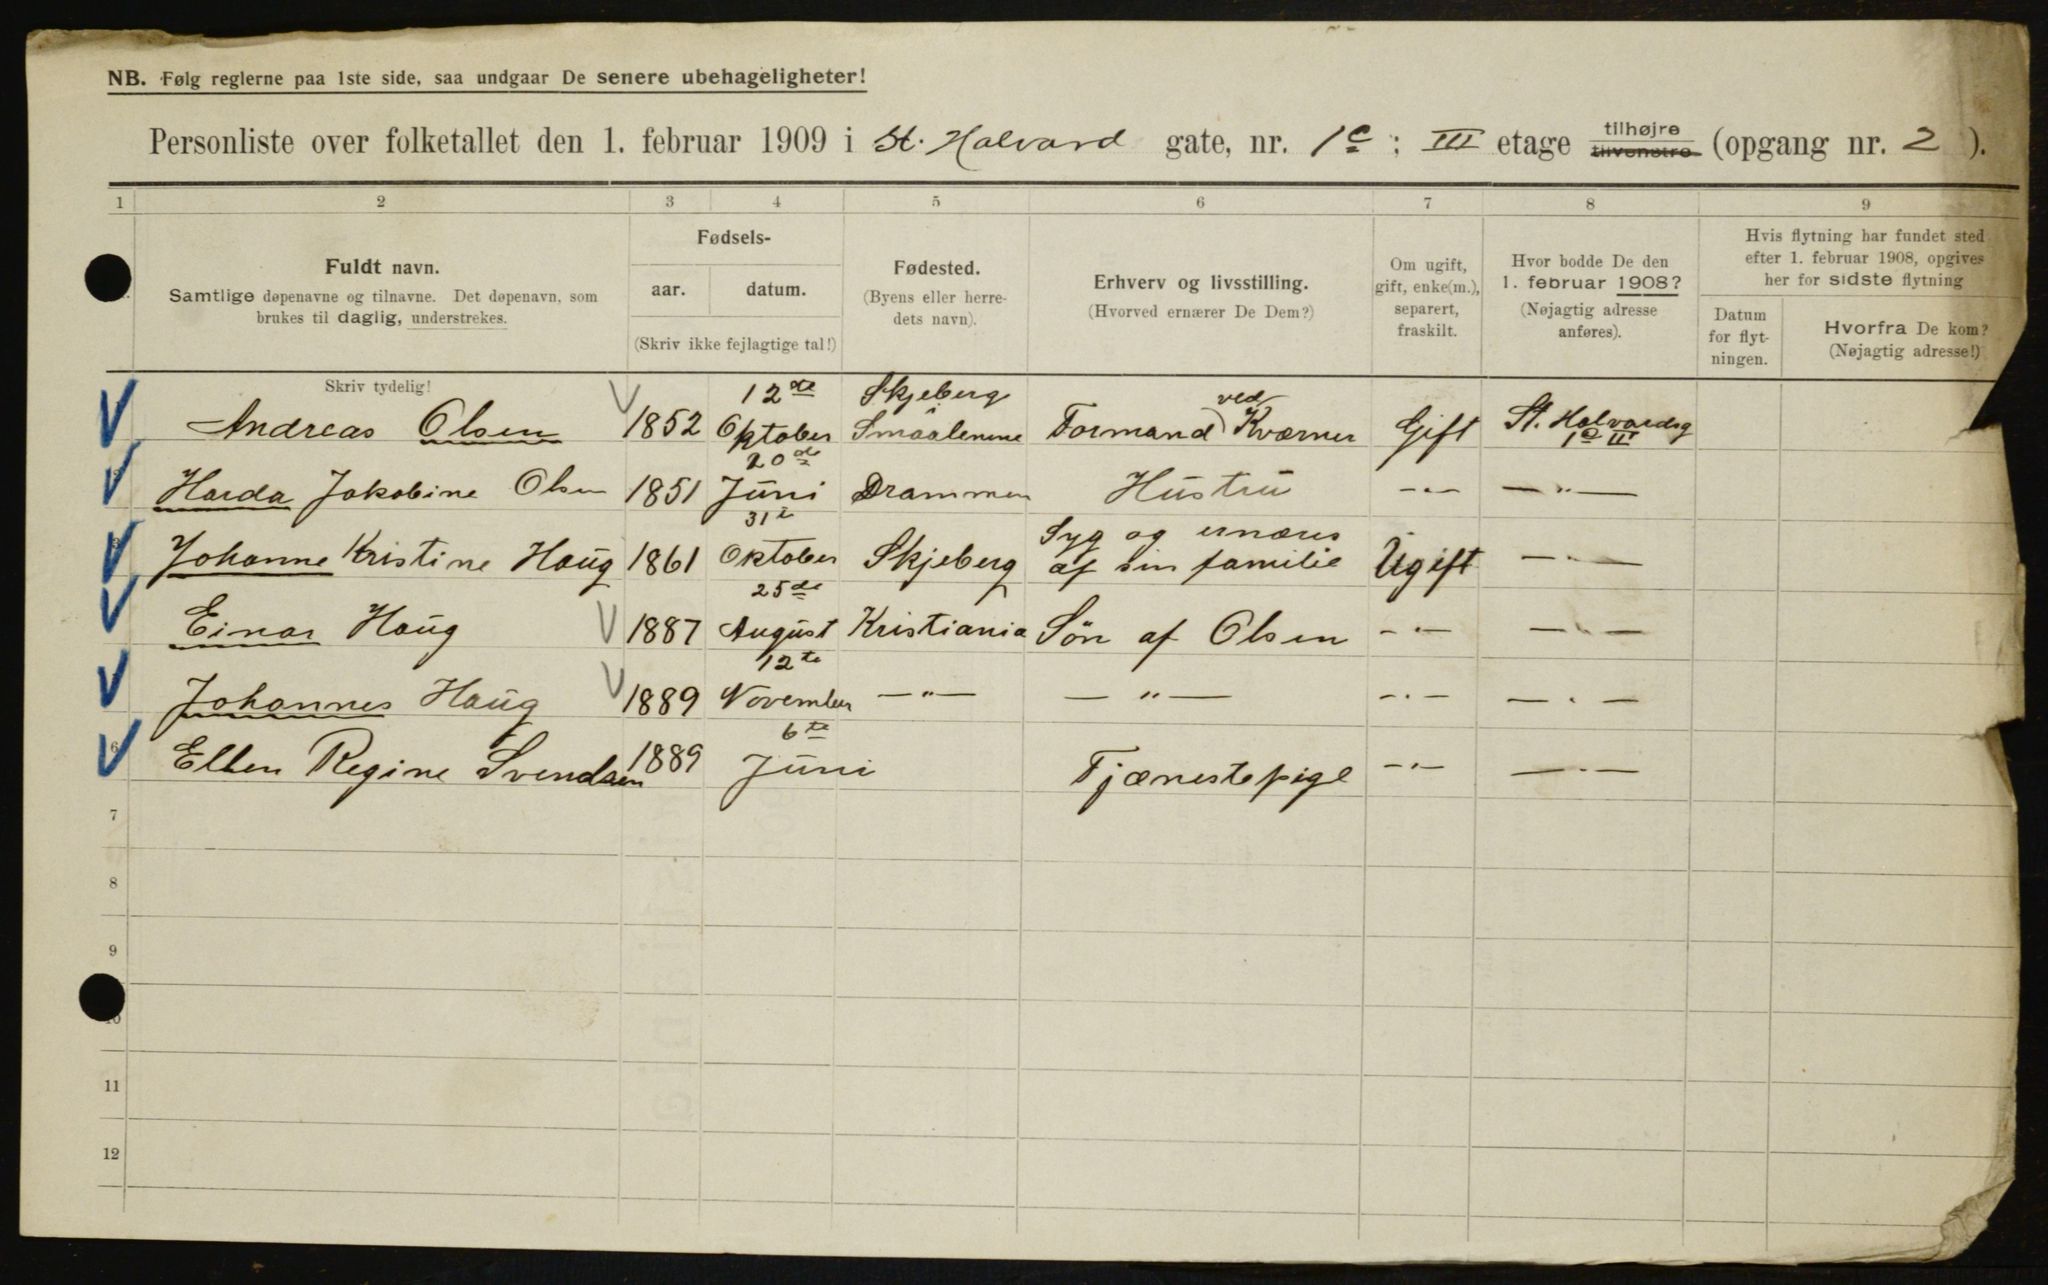 NB. Følg reglerne paa 1ste side, saa undgaar De senere ubehageligheter!
Personliste over folketallet den 1. februar 1909 i St. Halvard gate, nr. 1c ; III etage tilhøjre tilvenstre (opgang nr. 2 ).
1 2 3 4 5 6 7 8 9
Fuldt navn.
Samtlige døpenavne og tilnavne. Det døpenavn, som
brukes til daglig, understrekes.
Skriv tydelig!
Fødsels-
aar. datum.
(Skriv ikke fejlagtige tal!)
Fødested.
(Byens eller herre-
dets navn).
Erhverv og livsstilling.
(Hvorved ernærer De Dem?)
Om ugift,
gift, enke(m.),
separert,
fraskilt.
Hvor bodde De den
1. februar 1908?
(Nøjagtig adresse
anføres).
Hvis flytning har fundet sted
efter 1. februar 1908, opgives
her for sidste flytning
Datum
for flyt-
ningen.
Hvorfra De kom?
(Nøjagtig adresse!)
12de Skjeberg ved
Andreas Olsen 1852 Oktober Smaalenene Formand Kværner Gift St. Halvardsg
1c III
20de
Harda Jakobine Olsen 1851 Juni Drammen Hustru —"— —"—
31te Syg og ernæres
Johanne Kristine Haug 1861 Oktober Skjeberg af sin familie Ugift —"—
25de
Einar Haug 1887 August Kristiania Sön af Olsen —"— —"—
12te
Johannes Haug 1889 November —"— —"— —"— —"—
6te
6 Ellen Regine Svendsen 1889 Juni Tjænestepige —"— —"—
7
8
9
10
11
12